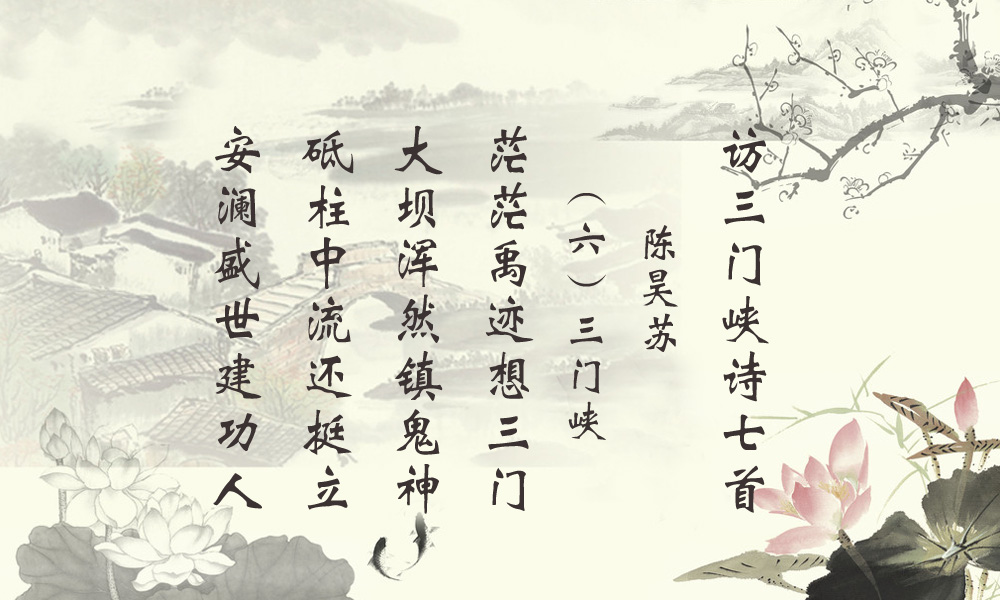 访三门峡诗七首
陈昊苏
（六）三门峡
茫茫禹迹想三门
大坝浑然镇鬼神
砥柱中流还挺立
安澜盛世建功人